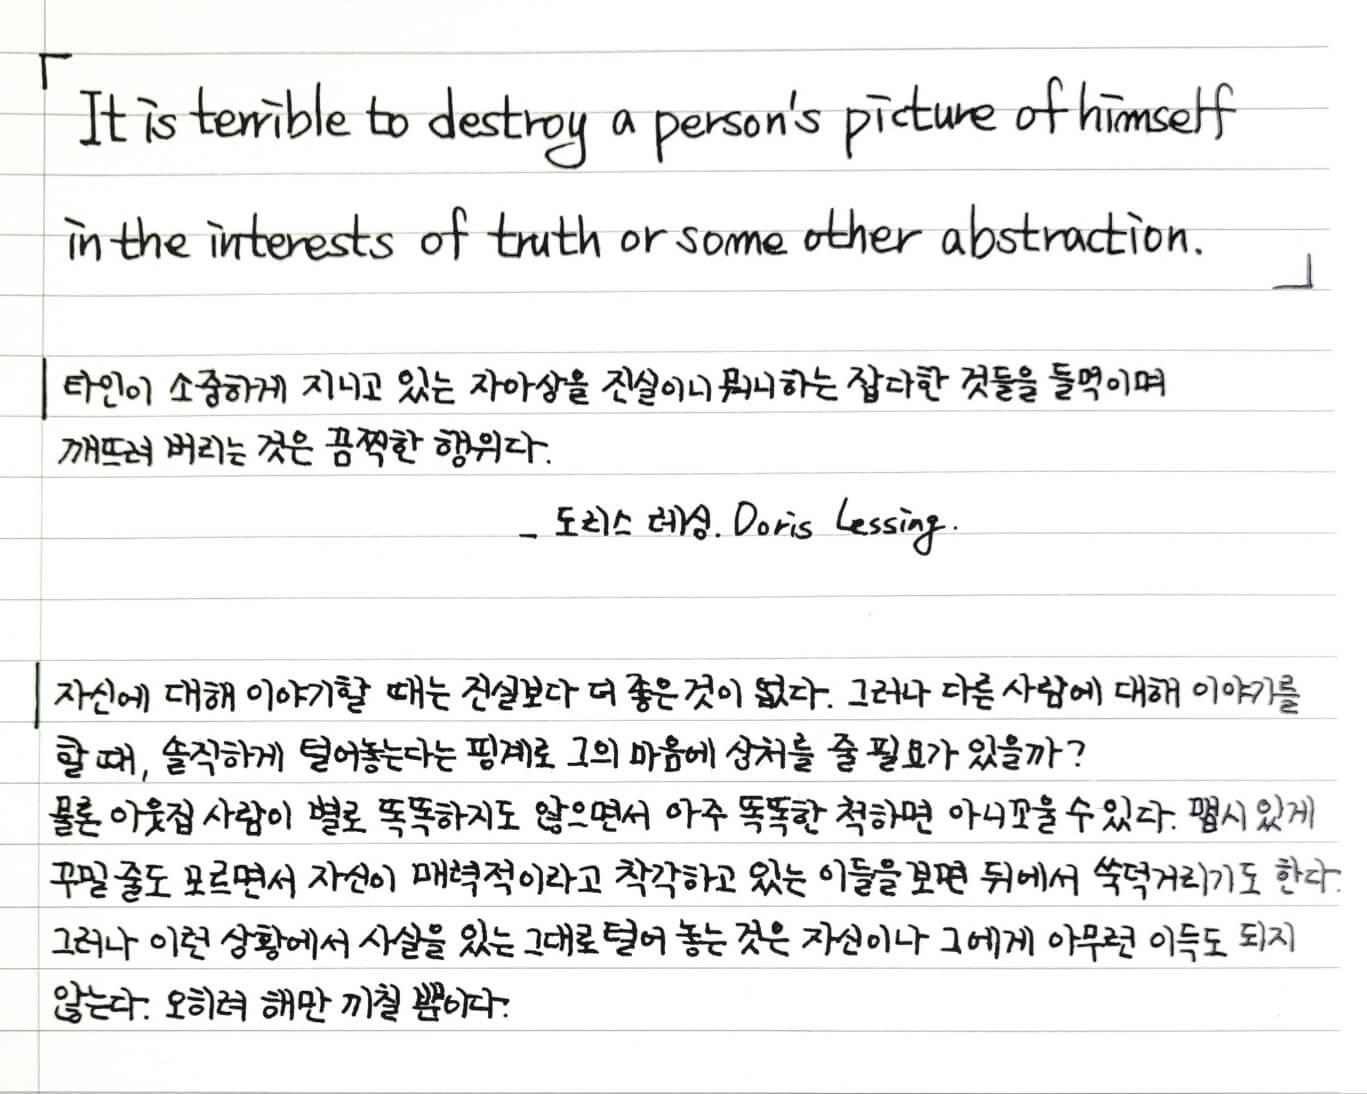 「It is terrible to destroy a person's picture of himself
in the interests of truth or some other abstraction.」
타인이 소중하게 지니고 있는 자아상을 진실이니 뭐니하는 잡다한 것들을 들먹이며
깨뜨려 버리는 것은 끔찍한 행위다.
_ 도리스 레싱. Doris Lessing.
자신에 대해 이야기할 때는 진실보다 더 좋은 것이 없다. 그러나 다른 사람에 대해 이야기를
할 때, 솔직하게 털어놓는다는 핑계로 그의 마음에 상처를 줄 필요가 있을까?
물론 이웃집 사람이 별로 똑똑하지도 않으면서 아주 똑똑한 척하면 아니꼬울 수 있다. 맵시 있게
꾸밀 줄도 모르면서 자신이 매력적이라고 착각하고 있는 이들을 보면 뒤에서 쑥덕거리기도 한다.
그러나 이런 상황에서 사실을 있는 그대로 털어 놓는 것은 자신이나 그에게 아무런 이득도 되지
않는다. 오히려 해만 끼칠 뿐이다.